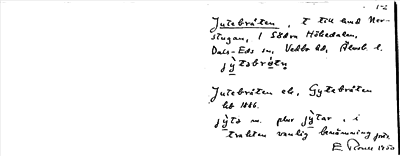 1-2
Jutebråten, t till hmd Nor-
stugan, 1 Södra Höbedalen,
Dals-Eds sn, Vedbo hd, Älvsb. l.
jỳtəbråtn
Jutebråten el. Gytebråten
lbt 1886.
jỳtə m. plur jỳtar, i
trakten vanlig benämning
E